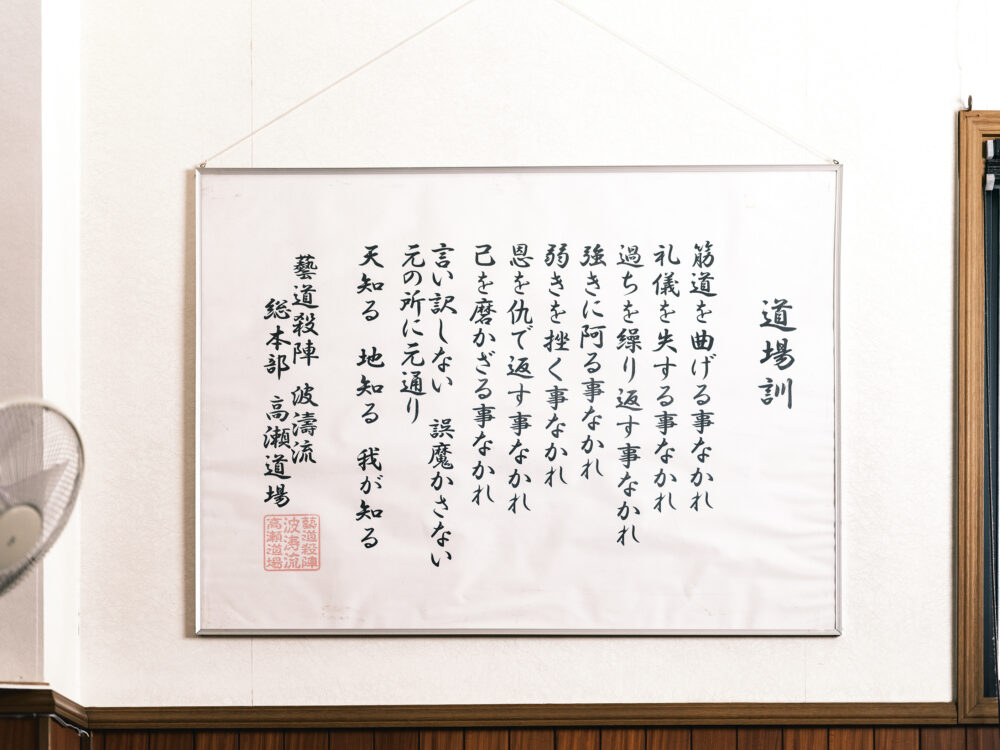 道場訓
筋道を曲げる事なかれ
礼儀を失する事なかれ
過ちを繰り返す事なかれ
強きに阿る事なかれ
弱きを挫く事なかれ
恩を仇で返す事なかれ
己を磨かざる事なかれ
言い訳しない 誤魔かさない
元の所に元通り
天知る 地知る 我が知る
藝道殺陣 波濤流
総本部 高瀬道場
藝道殺陣
波涛流
高瀬道場